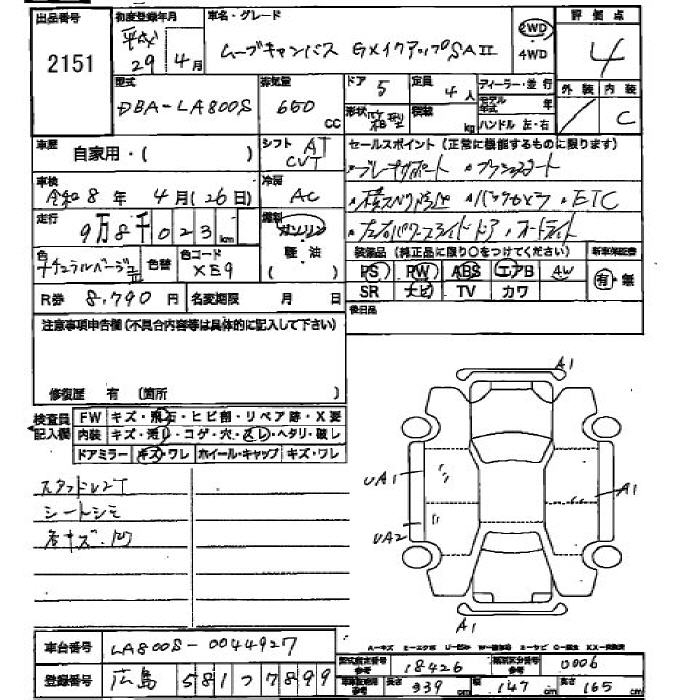 出品番号 初度登録年月 車名・グレード 評価点
2151 平成29年4月 ムーブキャンバス GXメイクアップSAII 2WD 4WD 4
型式 排気量 ドア 5 定員 4人 ディーラー・並行 外装 内装
DBA-LA800S 660 CC 形状 箱型 積載 kg モデル年式 年 ハンドル 左・右 C
車歴 自家用・( ) シフト AT CVT セールスポイント(正常に機能するものに限ります)
ブレーキサポート ・プッシュスタート
車検 令和8年 4月(26日) 冷房 AC
・横スベリ防止 ・バックカメラ ・ETC
走行 9万8千023km 燃料 ガソリン 軽油
・左右パワースライドドア ・オートライト
色 ナチュラルベージュ 色替 色コード XE9
装備品(純正品に限り○をつけてください) 新車保証書
PS PW ABS エアB AW 有・無
R券 8,790円 名変期限 月 日
SR ナビ TV カワ
後日品
注意事項申告欄(不具合内容等は具体的に記入して下さい)
修復歴 有(箇所 )
検査員記入欄
FW キズ・飛石・ヒビ割・リペア跡・X要
内装 キズ・汚れ・コゲ・穴・スレ・ヘタリ・破し
ドアミラー キズ・ワレ ホイール・キャップ キズ・ワレ
A1
UA1
A1
UA2
A1
シートシミ
各キズ・凹
車台番号 LA800S-0044927
登録番号 広島 581 つ 7899
型式指定番号 参考 18426 類別区分番号 参考 0006
長さ 339cm 幅 147cm 高さ 165cm